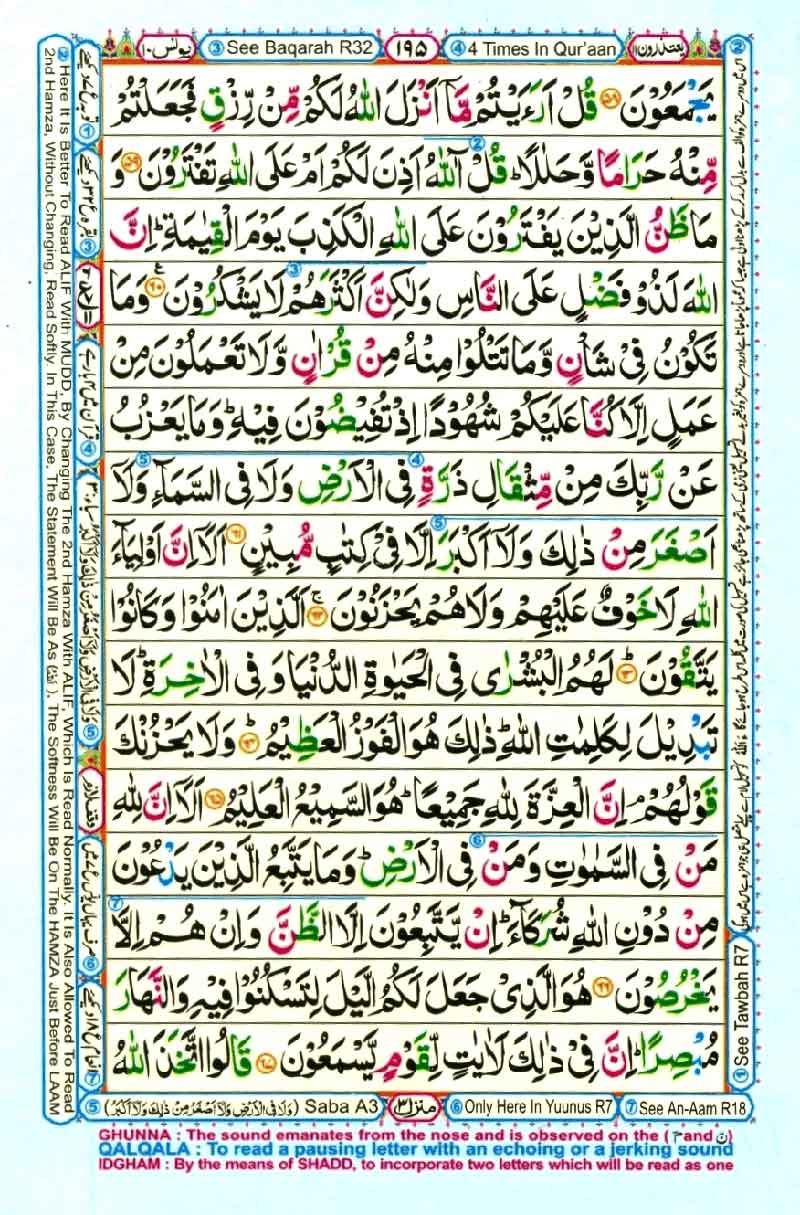 يعتذرون ١١
④ 4 Times In Qur'aan
١٩٥
③ See Baqarah R32
يونس ١٠
يَجْمَعُوْنَ ۝٥٨ قُلْ اَرَءَيْتُمْ مَّاۤ اَنْزَلَ اللّٰهُ لَكُمْ مِّنْ رِّزْقٍ فَجَعَلْتُمْ
مِّنْهُ حَرَامًا وَّحَلٰلًا ؕ قُلْ آٰللّٰهُ اَذِنَ لَكُمْ اَمْ عَلَى اللّٰهِ تَفْتَرُوْنَ ۝٥٩ وَ
مَا ظَنُّ الَّذِيْنَ يَفْتَرُوْنَ عَلَى اللّٰهِ الْكَذِبَ يَوْمَ الْقِيٰمَةِ ؕ اِنَّ
اللّٰهَ لَذُوْ فَضْلٍ عَلَى النَّاسِ وَلٰكِنَّ اَكْثَرَهُمْ لَا يَشْكُرُوْنَ ۝٦٠ وَمَا
تَكُوْنُ فِيْ شَاْنٍ وَّمَا تَتْلُوْا مِنْهُ مِنْ قُرْاٰنٍ وَّلَا تَعْمَلُوْنَ مِنْ
عَمَلٍ اِلَّا كُنَّا عَلَيْكُمْ شُهُوْدًا اِذْ تُفِيْضُوْنَ فِيْهِ ؕ وَمَا يَعْزُبُ
عَنْ رَّبِّكَ مِنْ مِّثْقَالِ ذَرَّةٍ فِي الْاَرْضِ وَلَا فِي السَّمَآءِ وَلَاۤ
اَصْغَرَ مِنْ ذٰلِكَ وَلَاۤ اَكْبَرَ اِلَّا فِيْ كِتٰبٍ مُّبِيْنٍ ۝٦١ اَلَاۤ اِنَّ اَوْلِيَآءَ
اللّٰهِ لَا خَوْفٌ عَلَيْهِمْ وَلَا هُمْ يَحْزَنُوْنَ ۝٦٢ اَلَّذِيْنَ اٰمَنُوْا وَكَانُوْا
يَتَّقُوْنَ ۝٦٣ لَهُمُ الْبُشْرٰى فِي الْحَيٰوةِ الدُّنْيَا وَ فِي الْاٰخِرَةِ ؕ لَا
تَبْدِيْلَ لِكَلِمٰتِ اللّٰهِ ؕ ذٰلِكَ هُوَ الْفَوْزُ الْعَظِيْمُ ۝٦٤ وَلَا يَحْزُنْكَ
قَوْلُهُمْ ۘ اِنَّ الْعِزَّةَ لِلّٰهِ جَمِيْعًا ؕ هُوَ السَّمِيْعُ الْعَلِيْمُ ۝٦٥ اَلَاۤ اِنَّ لِلّٰهِ
مَنْ فِي السَّمٰوٰتِ وَمَنْ فِي الْاَرْضِ ؕ وَمَا يَتَّبِعُ الَّذِيْنَ يَدْعُوْنَ
مِنْ دُوْنِ اللّٰهِ شُرَكَآءَ ؕ اِنْ يَّتَّبِعُوْنَ اِلَّا الظَّنَّ وَاِنْ هُمْ اِلَّا
يَخْرُصُوْنَ ۝٦٦ هُوَ الَّذِيْ جَعَلَ لَكُمُ الَّيْلَ لِتَسْكُنُوْا فِيْهِ وَالنَّهَارَ
مُبْصِرًا ؕ اِنَّ فِيْ ذٰلِكَ لَاٰيٰتٍ لِّقَوْمٍ يَّسْمَعُوْنَ ۝٦٧ قَالُوا اتَّخَذَ اللّٰهُ
① See Tawbah R7
② Here It Is Better To Read ALIF With MUDD, By Changing The 2nd Hamza With ALIF, Which Is Read Normally. It Is Also Allowed To Read
2nd Hamza, Without Changing, Read Softly. In This Case, The Statement Will Be As ( ), The Softness Will Be On The HAMZA Just Before LAAM
⑦ See An-Aam R18
⑥ Only Here In Yuunus R7
منزل ٣
⑤ (وَلَا فِي الْاَرْضِ وَلَاۤ اَصْغَرُ مِنْ ذٰلِكَ وَلَاۤ اَكْبَرُ) Saba A3
GHUNNA : The sound emanates from the nose and is observed on the ( م and ن )
QALQALA : To read a pausing letter with an echoing or a jerking sound
IDGHAM : By the means of SHADD, to incorporate two letters which will be read as one